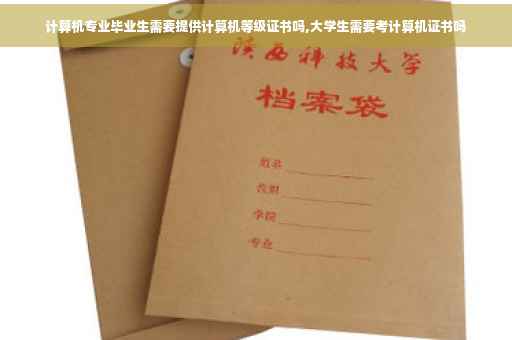 计算机专业毕业生需要提供计算机等级证书吗,大学生需要考计算机证书吗
陕西科技大学
档案袋
姓名
性别
学院
专业